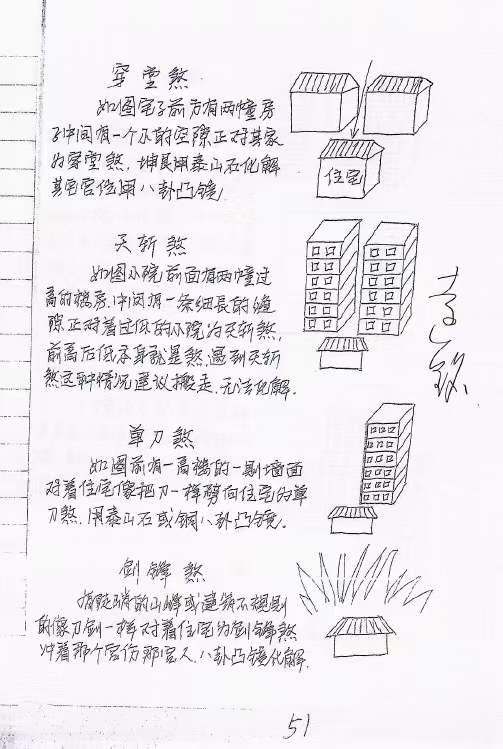 穿堂煞
如图宅子前方有两幢房
子中间有一个小的空隙正对其家
为穿堂煞,坤艮用泰山石化解
其它宫位用八卦凸镜
住宅
天斩煞
如图小院前面有两幢过
高的楼房,中间有一条细長的缝
隙正对着过低的小院为天斩煞,
前高后低本身就是煞,遇到天斩
煞这种情况建议搬走,无法化解.
单刀煞
如图前有一高楼的一刷墙面
对着住宅像把刀一样劈向住宅为单
刀煞.用泰山石或铜八卦凸镜.
剑锋煞
指陡峭的山峰或建筑不规则
的像刀剑一样对着住宅为剑锋煞
冲着那个宫伤那宫人.八卦凸镜化解.
51